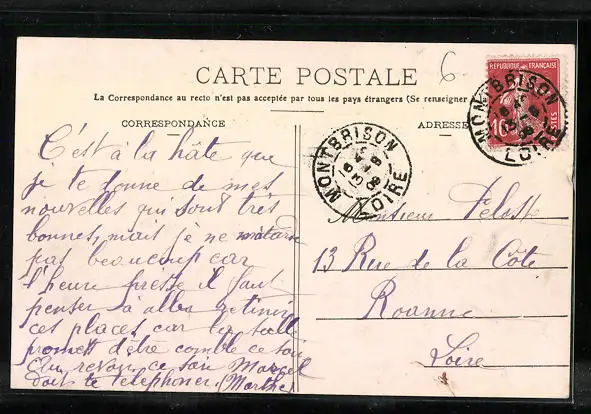 CARTE POSTALE
6
La Correspondance au recto n'est pas acceptée par tous les pays étrangers (Se renseigner
CORRESPONDANCE
ADRESSE
REPUBLIQUE FRANÇAISE
10
POSTES
MONTBRISON
LOIRE
MONTBRISON
LOIRE
C'est à la hâte que
je te donne de mes
nouvelles qui sont très
bonnes, mais je ne m'attarde
pas beaucoup car
l'heure presse il faut
penser à aller retenir
ces places car la salle
promet d'être comble ce soir
Au revoir ce soir Marcel
doit te telephoner (Marthe)
Monsieur
13 Rue de la Côte
Roanne
Loire